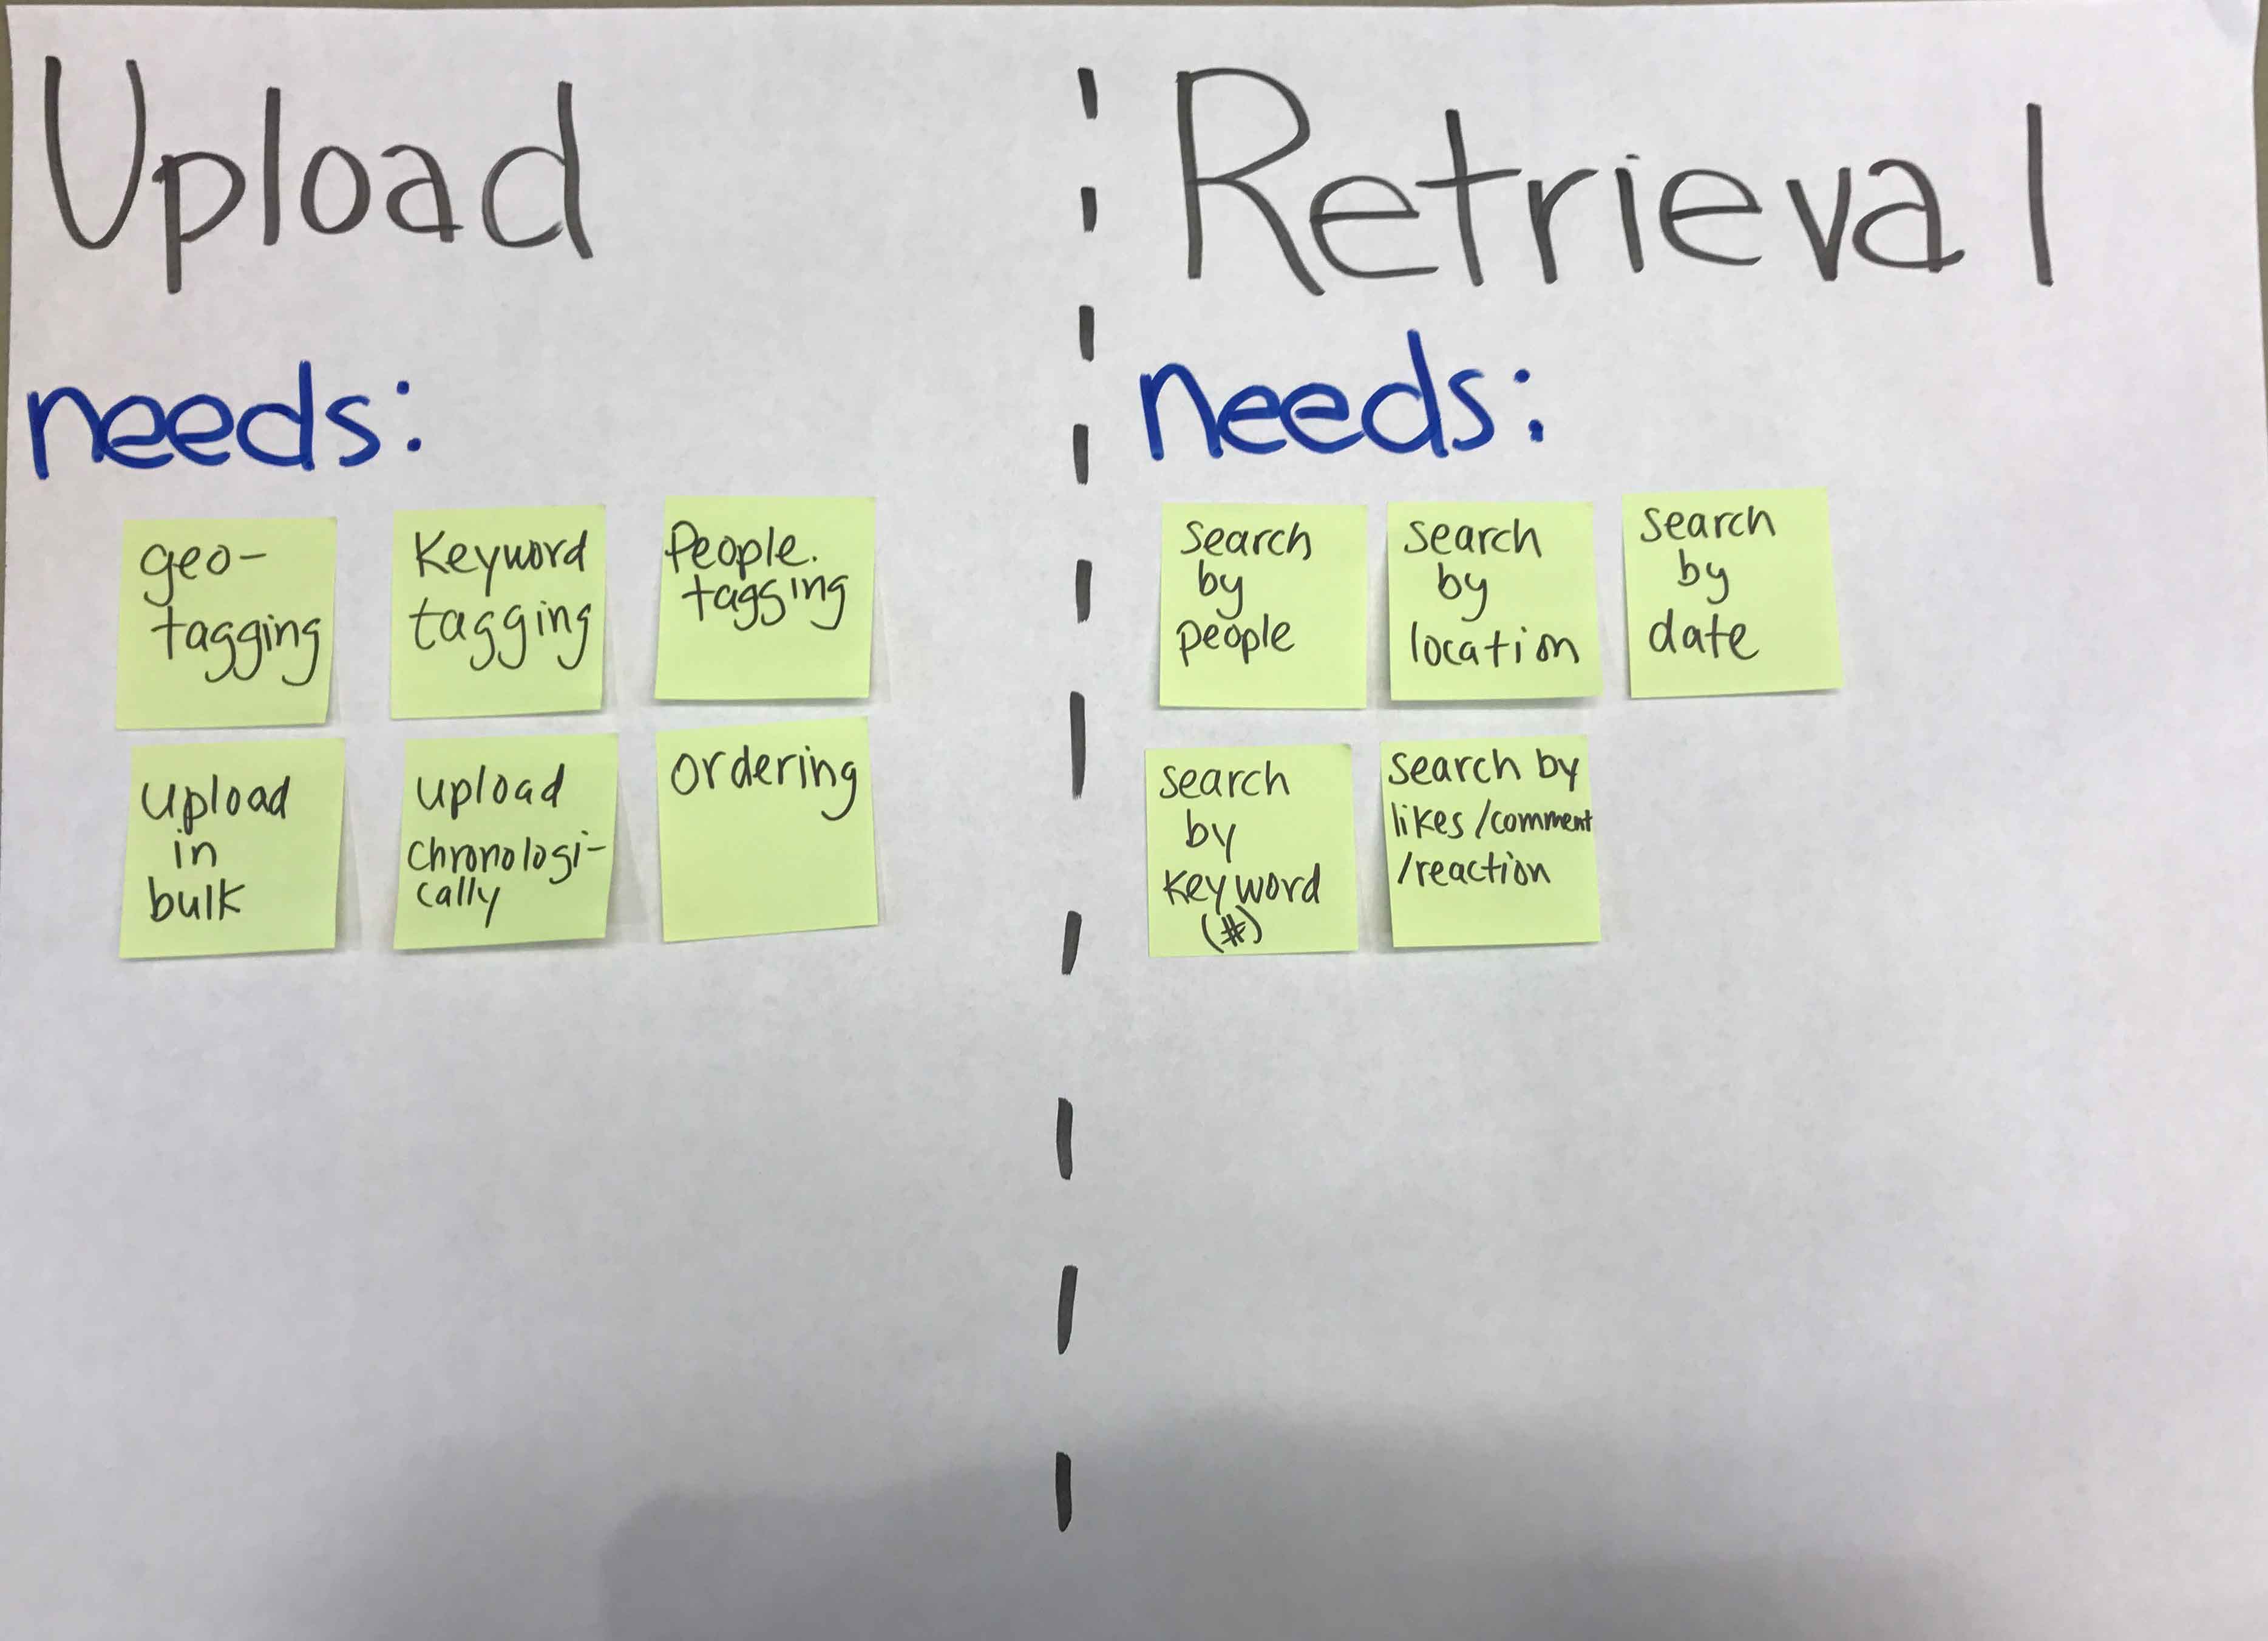 Upload
needs:
geo-
tagging
Keyword
tagging
People.
tagging
upload
in
bulk
upload
chronologi-
cally
ordering
Retrieval
needs:
search
by
people
search
by
location
search
by
date
search
by
keyword
(#)
search by
likes/comment
/reaction